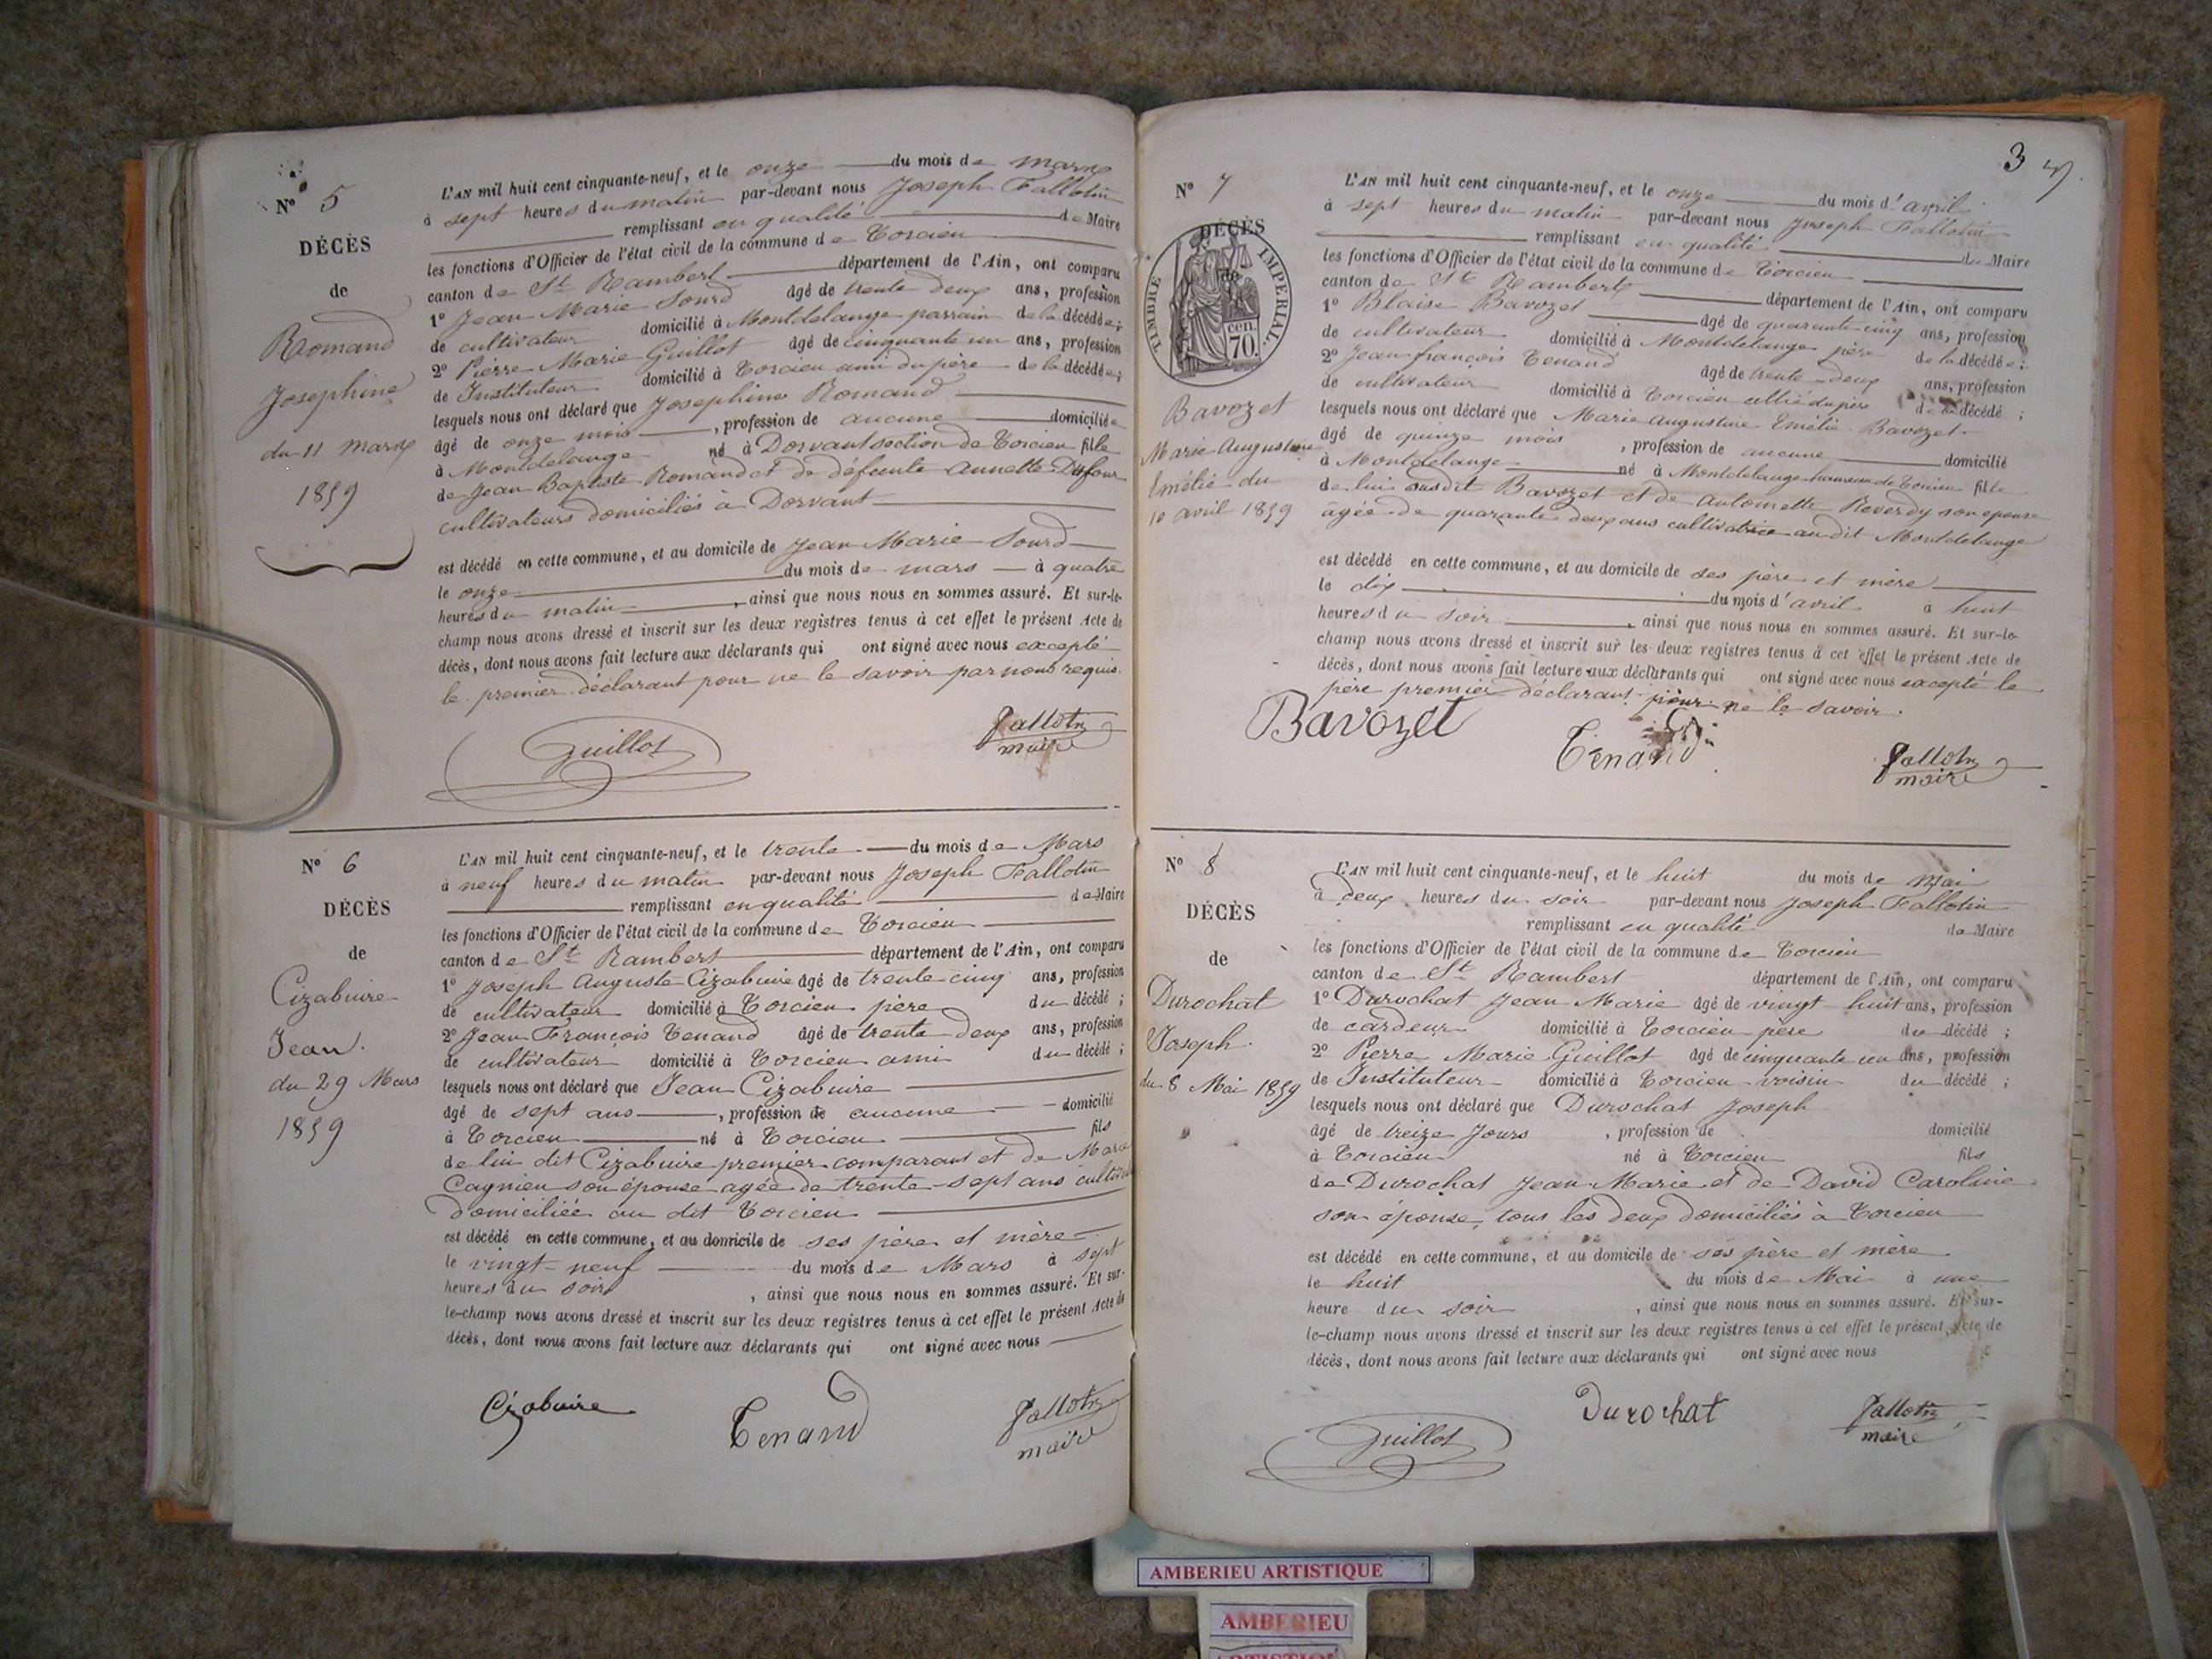 Nº 5
DÉCÈS
de
Romand
Josephine
du 11 mars
1859
L'AN mil huit cent cinquante-neuf, et le onze du mois de mars
à sept heures du matin par-devant nous Joseph Fallotin
remplissant en qualité de Maire
les fonctions d'Officier de l'état civil de la commune de Torcieu
canton de St Rambert département de l'Ain, ont comparu
1º Jean Marie Sourd âgé de trente deux ans, profession
de cultivateur domicilié à Montdelange parrain de la décédée;
2º Pierre Marie Guillot âgé de cinquante un ans, profession
de Instituteur domicilié à Torcieu ami du père de la décédée;
lesquels nous ont déclaré que Josephine Romand
âgé de onze mois, profession de aucune domiciliée
à Montdelange né à Dorvant section de Torcieu fille
de Jean Baptiste Romand et de défeunte Annette Dufour
cultivateurs domiciliés à Dorvant
est décédé en cette commune, et au domicile de Jean Marie Sourd
le onze du mois de mars à quatre
heures du matin, ainsi que nous nous en sommes assuré. Et sur-le-
champ nous avons dressé et inscrit sur les deux registres tenus à cet effet le présent Acte de
décès, dont nous avons fait lecture aux déclarants qui ont signé avec nous excepté
le premier déclarant pour ne le savoir par nous requis.
Guillot
Fallotin
maire
Nº 6
DÉCÈS
de
Cizabuire
Jean.
du 29 Mars
1859
L'AN mil huit cent cinquante-neuf, et le trente du mois de Mars
à neuf heures du matin par-devant nous Joseph Fallotin
remplissant en qualité de Maire
les fonctions d'Officier de l'état civil de la commune de Torcieu
canton de St Rambert département de l'Ain, ont comparu
1º Joseph Auguste Cizabuire âgé de trente cinq ans, profession
de cultivateur domicilié à Torcieu père du décédé;
2º Jean François Tenand âgé de trente deux ans, profession
de cultivateur domicilié à Torcieu ami du décédé;
lesquels nous ont déclaré que Jean Cizabuire
âgé de sept ans, profession de aucune domicilié
à Torcieu né à Torcieu fils
de lui dit Cizabuire premier comparant et de
Cagnieu son épouse agée de trente-sept ans
domiciliée au dit Torcieu
est décédé en cette commune, et au domicile de ses père et mère
le vingt-neuf du mois de Mars à sept
heures du soir, ainsi que nous nous en sommes assuré. Et sur-
le-champ nous avons dressé et inscrit sur les deux registres tenus à cet effet le présent Acte de
décès, dont nous avons fait lecture aux déclarants qui ont signé avec nous
Cizabuire
Tenand
Fallotin
maire
3
Nº 7
DÉCÈS
de
TIMBRE IMPERIAL.
cen.
70.
Bavozet
Marie Augustine
Emélie du
10 avril 1859
L'AN mil huit cent cinquante-neuf, et le onze du mois d'avril
à sept heures du matin par-devant nous Joseph Fallotin
remplissant en qualité de Maire
les fonctions d'Officier de l'état civil de la commune de Torcieu
canton de St Rambert département de l'Ain, ont comparu
1º Blaise Bavozet âgé de quarante-cinq ans, profession
de cultivateur domicilié à Montdelange père de la décédée;
2º Jean françois Tenand âgé de trente-deux ans, profession
de cultivateur domicilié à Torcieu allié du père de la décédé;
lesquels nous ont déclaré que Marie Augustine Emélie Bavozet
âgé de quinze mois, profession de aucune domicilié
à Montdelange né à Montdelange hameau de Torcieu fille
de lui susdit Bavozet et de Antoinette Reverdy son epouse
agée de quarante deux ans cultivatrice au dit Montdelange
est décédé en cette commune, et au domicile de ses père et mère
le dix du mois d'avril à huit
heures du soir, ainsi que nous nous en sommes assuré. Et sur-le-
champ nous avons dressé et inscrit sur les deux registres tenus à cet effet le présent Acte de
décès, dont nous avons fait lecture aux déclarants qui ont signé avec nous excepté le
père premier déclarant pour ne le savoir.
Bavozet
Tenand
Fallotin
maire
Nº 8
DÉCÈS
de
Durochat
Joseph.
du 8 Mai 1859
L'AN mil huit cent cinquante-neuf, et le huit du mois de Mai
à deux heures du soir par-devant nous Joseph Fallotin
remplissant en qualité de Maire
les fonctions d'Officier de l'état civil de la commune de Torcieu
canton de St Rambert département de l'Ain, ont comparu
1º Durochat Jean Marie âgé de vingt-huit ans, profession
de cardeur domicilié à Torcieu père du décédé;
2º Pierre Marie Guillot âgé de cinquante un ans, profession
de Instituteur domicilié à Torcieu voisin du décédé;
lesquels nous ont déclaré que Durochat Joseph
âgé de treize Jours, profession de domicilié
à Torcieu né à Torcieu fils
de Durochat Jean-Marie et de David Caroline
son épouse, tous les deux domiciliés à Torcieu
est décédé en cette commune, et au domicile de ses père et mère
le huit du mois de Mai à une
heure du soir, ainsi que nous nous en sommes assuré. Et sur-
le-champ nous avons dressé et inscrit sur les deux registres tenus à cet effet le présent Acte de
décès, dont nous avons fait lecture aux déclarants qui ont signé avec nous
Guillot
Durochat
Fallotin
maire
AMBERIEU ARTISTIQUE
AMBERIEU
ARTISTIQUE